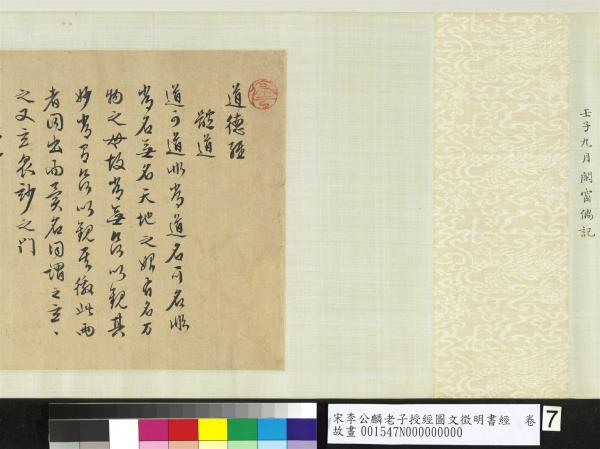 壬子九月閒窗偶記
道德經
體道
道可道非常道名可名非
常名無名天地之始有名万
物之母故常無欲以觀其
妙常有欲以觀其徼此兩
者同出而異名同謂之玄〻
之又玄衆妙之门
宋李公麟老子授經圖文徵明書經 卷
故畫 001547N000000000
7